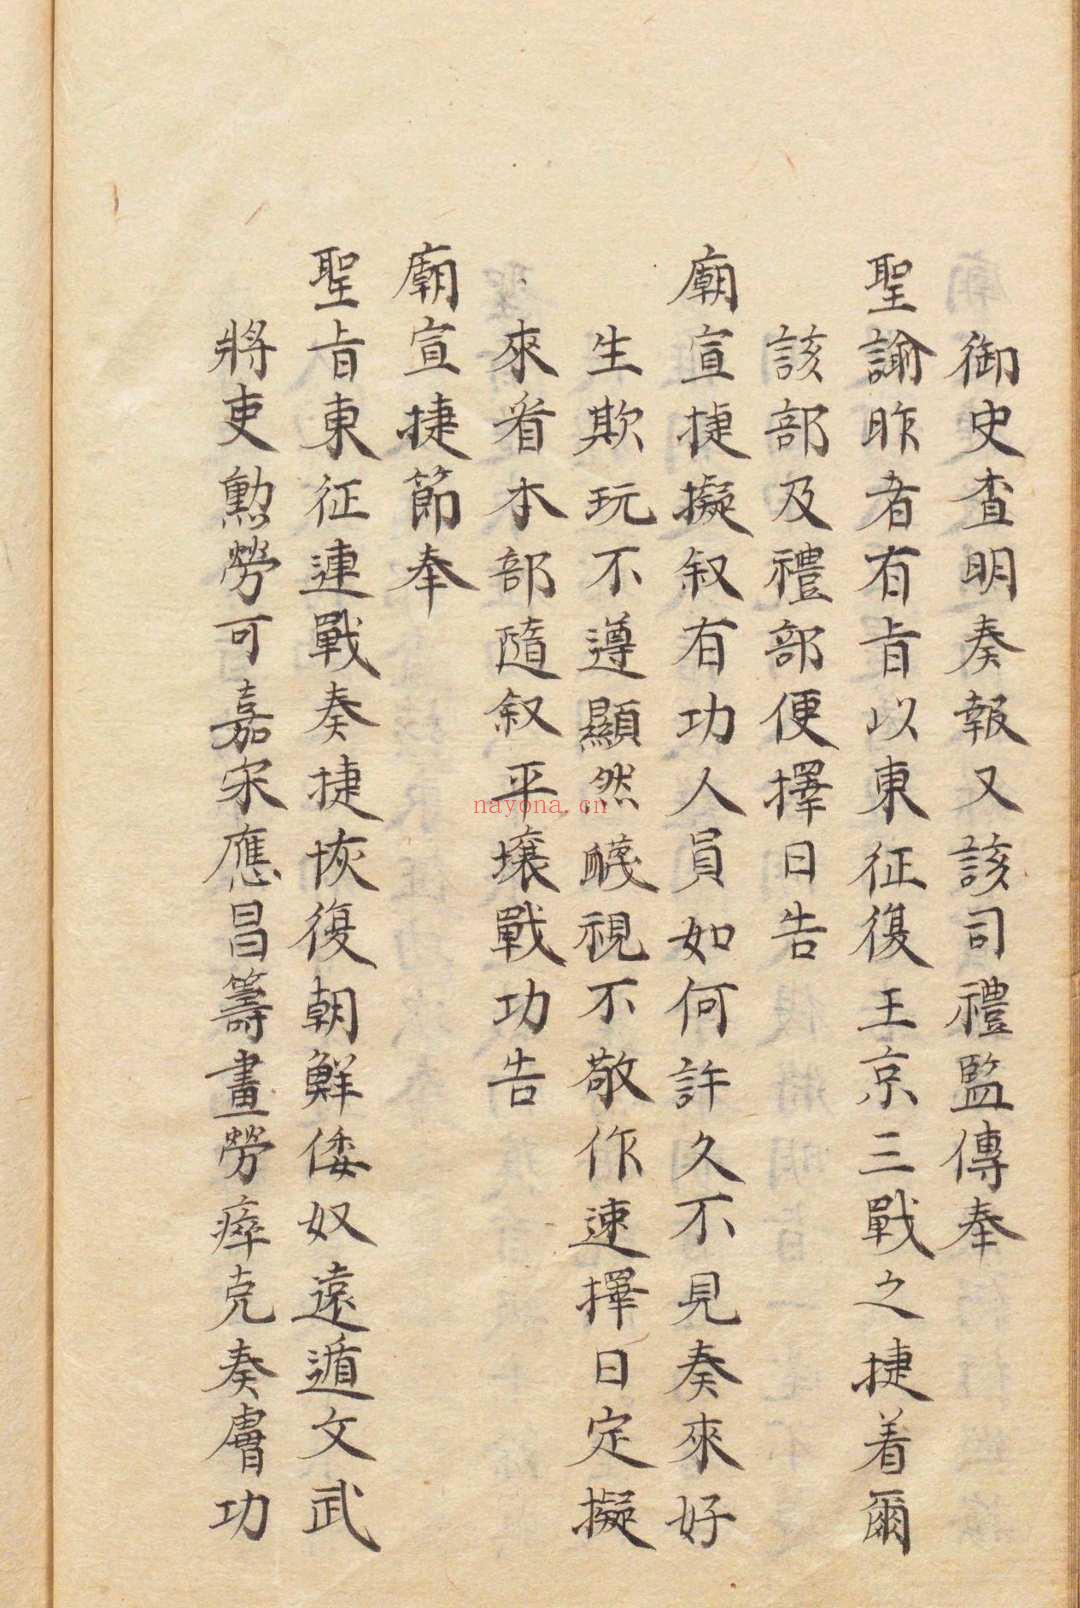 御史查明奏報又該司禮監傳奉
聖諭昨者有旨以東征復王京三戰之捷着爾
該部及禮部便擇日告
廟宣捷擬叙有功人員如何許久不見奏來好
生欺玩不遵顯然衊視不敬作速擇日定擬
來看本部隨叙平壤戰功告
廟宣捷節奉
聖旨東征連戰奏捷恢復朝鮮倭奴遠遁文武
將吏勲勞可嘉宋應昌籌畫勞瘁克奏膚功
nayona.cn